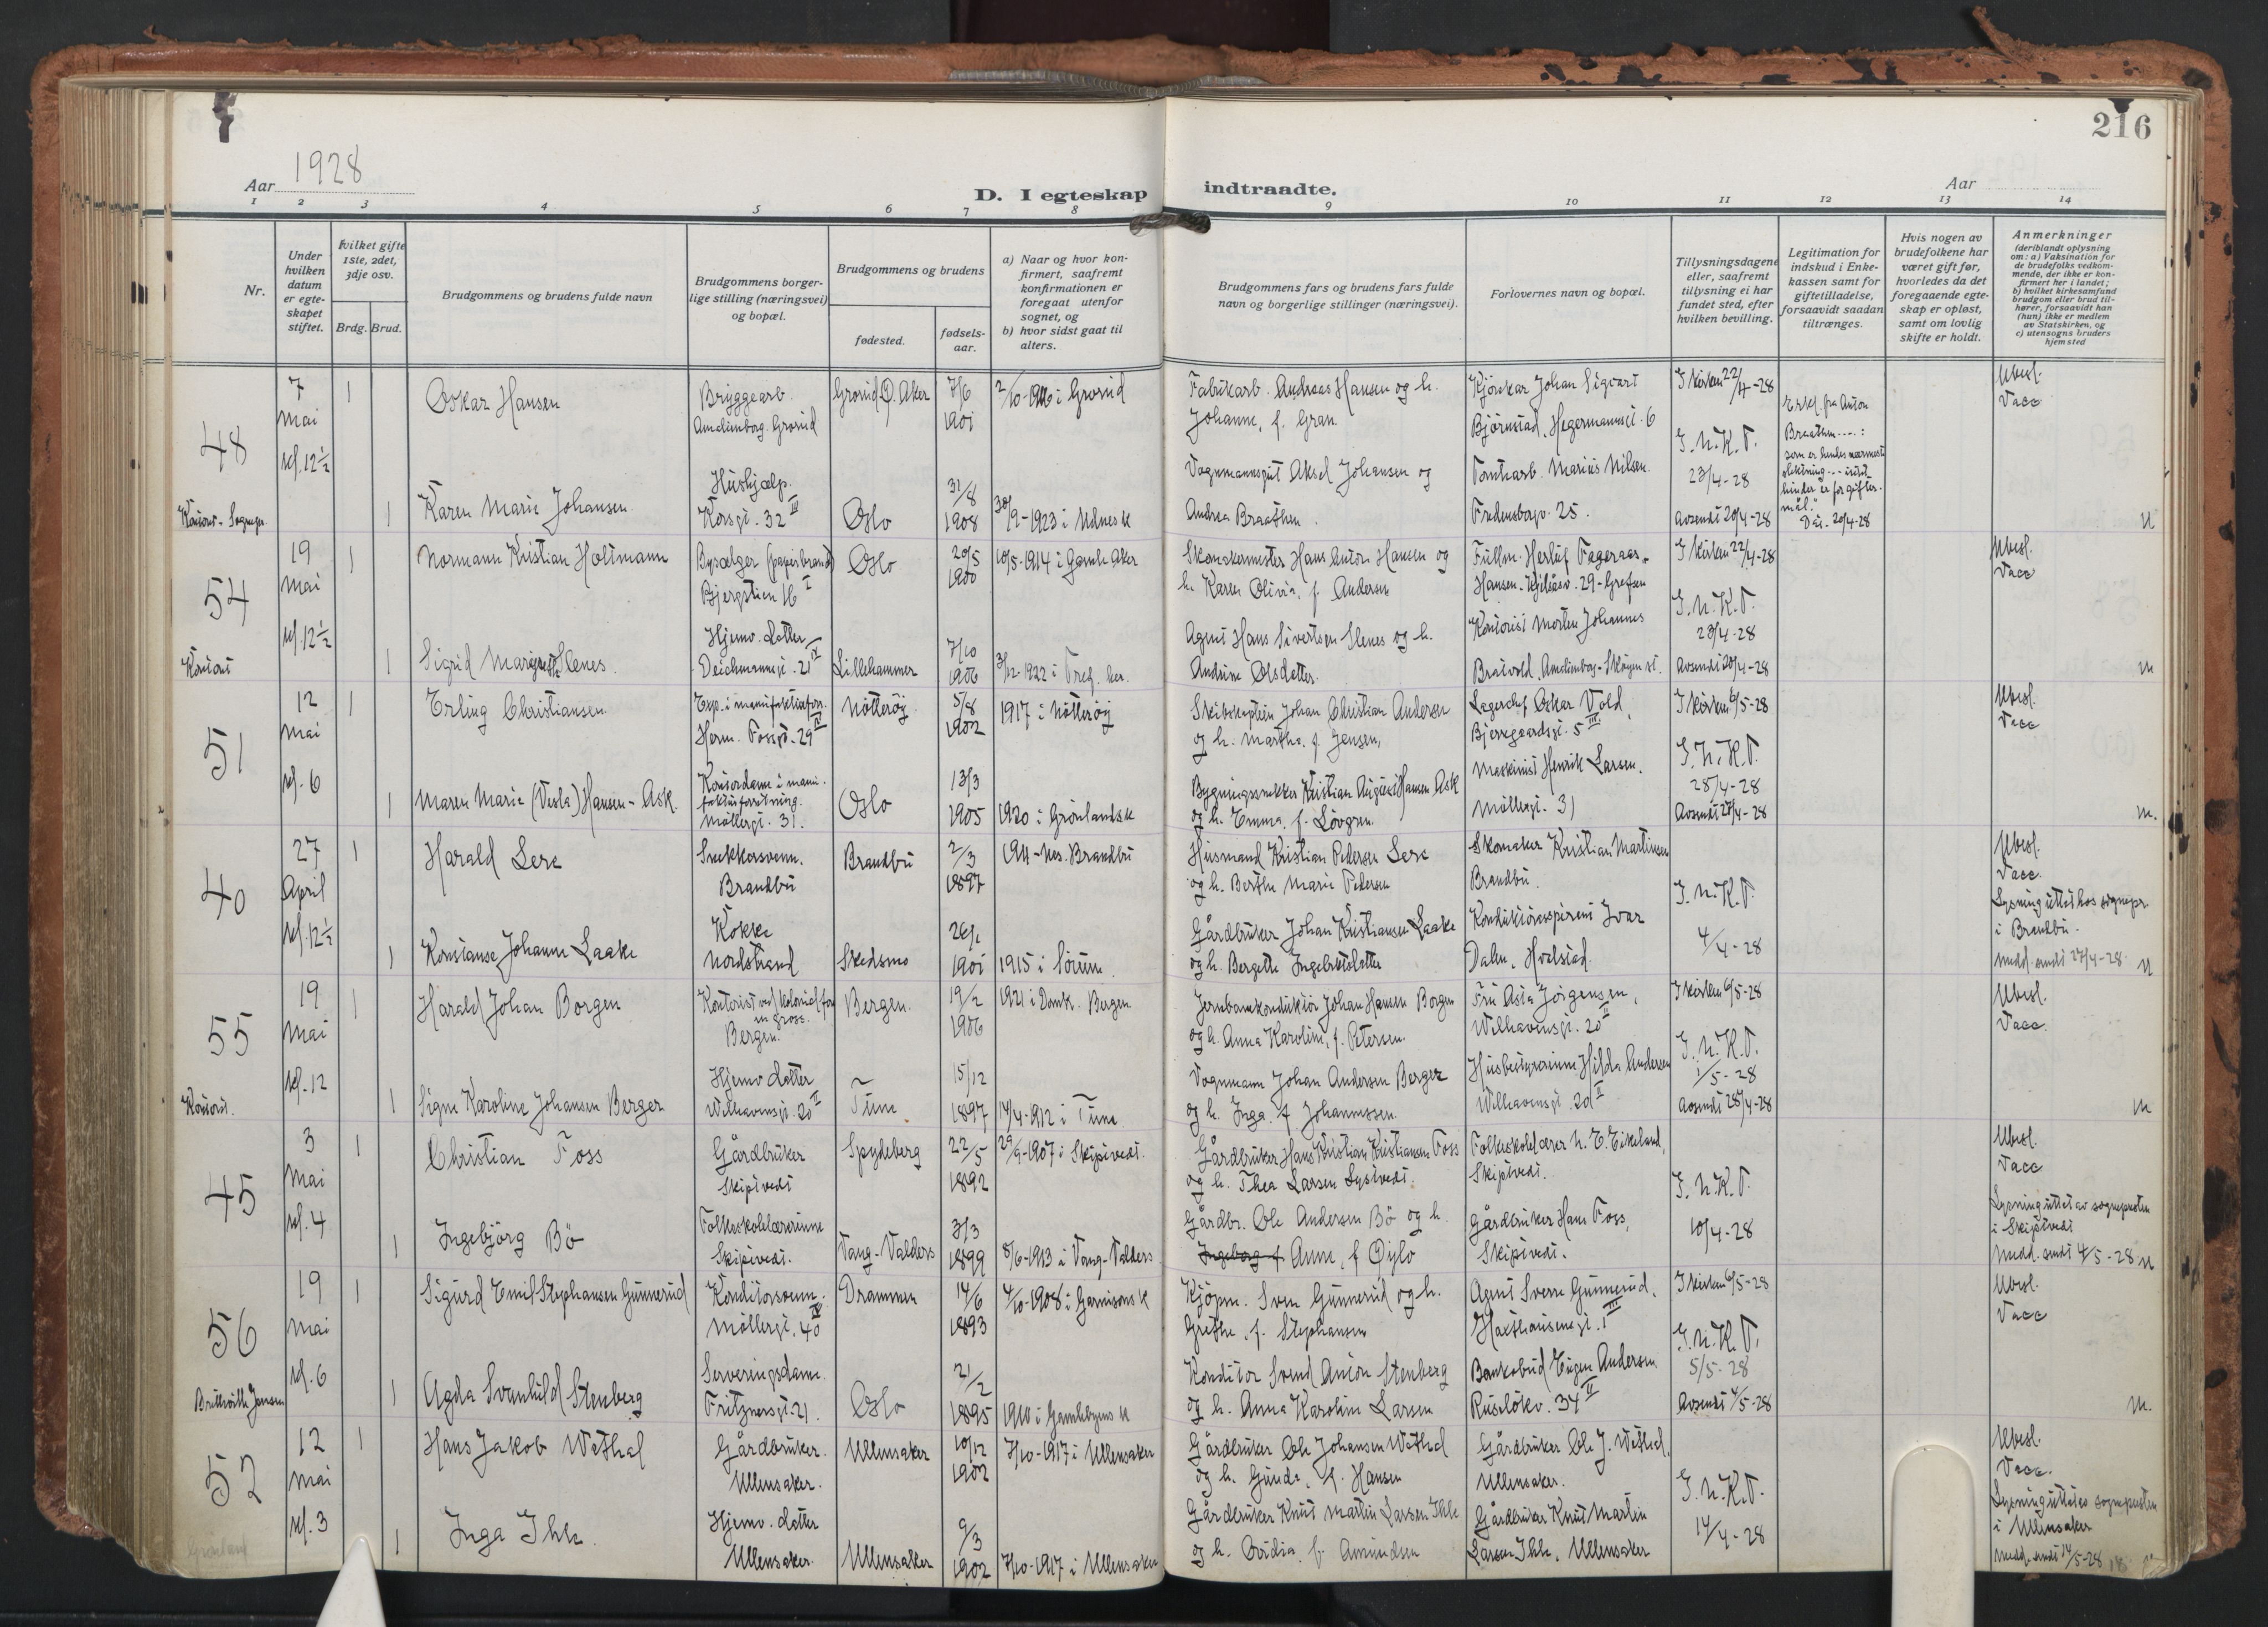 216
Aar 1928
D. I egteskap indtraadte.
Aar
1 2 3 4 5 6 7 8 9 10 11 12 13 14
Nr.
Under hvilken datum er egteskapet stiftet.
Hvilket gifte 1ste, 2det, 3dje osv.
Brdg. Brud.
Brudgommens og brudens fulde navn
Brudgommens borgerlige stilling (næringsvei) og bopæl.
Brudgommens og brudens
fødested.
fødselsaar.
a) Naar og hvor konfirmert, saafremt konfirmationen er foregaat utenfor sognet, og
b) hvor sidst gaat til alters.
Brudgommens fars og brudens fars fulde navn og borgerlige stillinger (næringsvei).
Forlovernes navn og bopæl.
Tillysningsdagene eller, saafremt tillysning ei har fundet sted, efter hvilken bevilling.
Legitimation for indskud i Enkekassen samt for giftetilladelse, forsaavidt saadan tiltrænges.
Hvis nogen av brudefolkene har været gift før, hvorledes da det foregaaende egteskap er opløst, samt om lovlig skifte er holdt.
Anmerkninger (deriblandt oplysning om: a) Vaksination for de brudefolks vedkommende, der ikke er konfirmert her i landet; b) hvilket kirkesamfund brudgom eller brud tilhører, forsaavidt han (hun) ikke er medlem av Statskirken, og c) utensogns bruders hjemsted
48
7 Mai kl. 12½
1 Oskar Hansen
Bryggearb. Amalienborg. Grorud
Grorud Ø. Aker
7/6 1901
2/10-1916 i Grorud
Fabrikarb. Andreas Hansen og h.
Johanne, f. Gran
Kjørekar Johan Sigvart
Bjørnstad, Hegermannsgt. 6
I kirken 22/4-28
Ubesl.
Vacc
1 Karen Marie Johansen
Hushjælp.
Korsgt. 32 III
Oslo
31/8 1908
30/9-1923 i Uranienk
Vognmannsgut Aksel Johansen og
Andrea Braathen.
Tomtearb. Marius Nilsen.
Fredensborgv. 25.
I.N.K.T.
23/4-28
Avsendt 20/4-28
Erkl. fra Anton
Braathen ....:
som er hendes nærmest
hinder er for gifter-
mål."
Dat. 20/4-28
54
19 Mai kl. 12½
1 Normann Kristian Holtmann
Bysælger (papirbransj)
Bjergstien 16 I
Oslo
20/5 1900
10/5-1914 i Gamle Aker
Skomakermester Hans Anton Hansen og
h. Karen Olivia, f. Andersen
Fullm. Herluf Fageraas-
Hansen. Kjelsåsv. 29-Grefsen
I kirken 22/4-28
Ubesl.
Vacc
Kontort
1 Sigrid Margrethe Slenes.
Hjemv. datter
Deichmannsgt. 21 IV
Lillehammer
7/10 1906
3/12-1922 i Tref. ker.
Agent Hans Sivertsen Slenes og h.
Andrine Olsdatter.
Kontorist Morten Johannes
Bratvold, Amalienborg-Skøyen st.
I.N.K.T.
23/4-28
Avsendt 20/4-28
51
12 Mai kl. 6
1 Erling Christiansen
Exp. i manufakturforr.
Herm. Fossgt. 29 IV
Nøtterøy
5/8 1902
1917 i Nøtterøy
Skibskaptein Johan Christian Andersen
og h. Martha, f. Jensen,
Lagerchef Oskar Vold,
Bjerregaardsgt. 5 III
I kirken 6/5-28
Ubesl.
Vacc
1 Maren Marie (Vesla) Hansen-Ask.
Kontordame i manufakturforretning.
Møllergt. 31.
Oslo
13/3 1905
1920 i Grønlandsk
Bygningssnekker Kristian August Hansen Ask
og h. Emma, f. Løvgren.
Maskinist Henrik Larsen.
Møllergt. 31
I.N.K.T.
28/4-28
Avsendt 27/4-28
40
27 April kl. 12½
1 Harald Lere
Snekkersvenn.
Brandbu
Brandbu
2/3 1897
1911-Nes. Brandbu
Husmand Kristian Pedersen Lere
og h. Berthe Marie Pedersen
Skomaker Kristian Martinsen
Brandbu.
Ubesl.
Vacc.
1 Konstanse Johanne Laake
Kokke
Nordstrand
Skedsmo
26/1 1901
1915 i Sørum
Gårdbruker Johan Kristiansen Laake
og h. Bergette Ingebretsdatter
Konduktøraspirant Ivar
Dalen, Hvalstad.
I.N.K.T.
4/4-28
Lysning utstet hos sognepr.
i Brandbu.
Medd. sendt 27/4-28
55
19 Mai kl. 12
1 Harald Johan Borgen
Kontorist ved kolonialforr. en gross.
Bergen.
Bergen.
19/2 1906
1921 i Domk. Bergen
Jernbanekonduktør Johan Hansen Borgen
og h. Anna Karoline, f. Petersen.
Fru Asta Jørgensen,
Welhavensgt. 20 II
I kirken 6/5-28
Ubesl.
Vacc.
1 Signe Karoline Johansen Berger
Hjemv datter
Welhavensgt. 20 II
Tune
15/12 1897
14/4-1912 i Tune
Vognmann Johan Andersen Berger
og h. Inga f. Johannessen.
Husbestyrerinne Hilda Andersen
Welhavensgt. 20 II
I.N.K.T.
1/5-28
Avsendt 28/4-28
45
3 Mai kl. 4
1 Christian Foss
Gårdbruker
Skiptvedt
Spydeberg
22/5 1892
29/9-1907 i Skiptvedt.
Gårdbruker Hans Kristian Kristiansen Foss
og h. Thea Larsen Lystvedt.
Folkeskolelærer N. E. Eikeland,
Skiptvedt.
Ubesl.
Vacc
1 Ingebjörg Bö
Folkeskolelærerinne
Skiptvedt.
Vang-Valders
3/3 1899
8/6-1913 i Vang-Valders
Gårdbr. Ole Andersen Bø og h.
Ingeborg f Anne, f Øylo
Gårdbruker Hans Foss,
Skiptvedt.
I.N.K.T.
10/4-28
Lysning uttat av sognepresten
i Skiptvedt
Medd. sendt 4/5-28
56
19 Mai kl. 6
1 Sigurd Emil Stephansen Gunnerud
Konditorsvenn.
Møllergt. 40 IV
Drammen
14/6 1893
4/10-1908 i Garnisonsk
Kjøpm. Sven Gunnerud og h.
Grethe, f. Stephansen
Agent Sverre Gunnerud,
Haxthausensgt. 1 III
I kirken 6/5-28
Ubesl.
Vacc
1 Agda Svanhild Stenberg
Serveringsdame.
Fritznersgt. 21.
Oslo
21/2 1895
1910 i Gamlebyens k
Konditor Svend Anton Stenberg
og h. Anna Karoline Larsen
Bankobud Eugen Andersen
Ruseløkv. 34 II
I.N.K.T.
5/5-28
Avsendt 4/5-28
52
12 Mai kl. 3
1 Hans Jakob Wethal
Gårdbruker.
Ullensaker.
Ullensaker
10/12 1902
7/10-1917 i Ullensaker
Gårdbruker Ole Johansen Wethal
og h. Gunda, f. Hansen
Gårdbruker Ole J. Wethal,
Ullensaker.
Ubesl.
Vacc.
1 Inga Ihle.
Hjemv. datter
Ullensaker.
Ullensaker
9/3 1902
7/10-1917 i Ullensaker
Gårdbruker Knut Martin Larsen Ihle
og h. Ovidia, f. Amundsen
Gårdbruker Knut Martin
Larsen Ihle, Ullensaker
I.N.K.T.
14/4-28
Lysning uttat av sognepresten
i Ullensaker
Medd. sendt 14/5-28